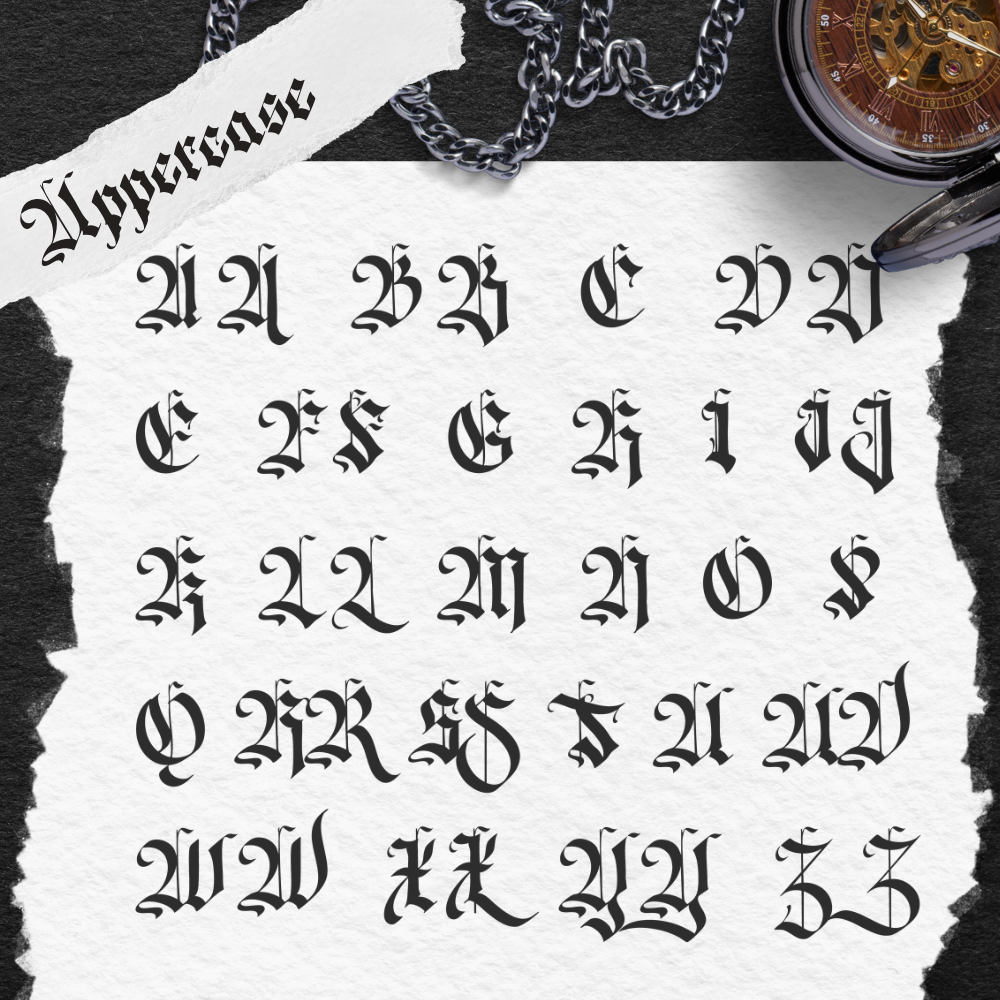 Uppercase
A A B B C D D
E F F G H I J J
K L L M N O P
Q R R S S T U V V
W W X X Y Y Z Z
50
45
40
35